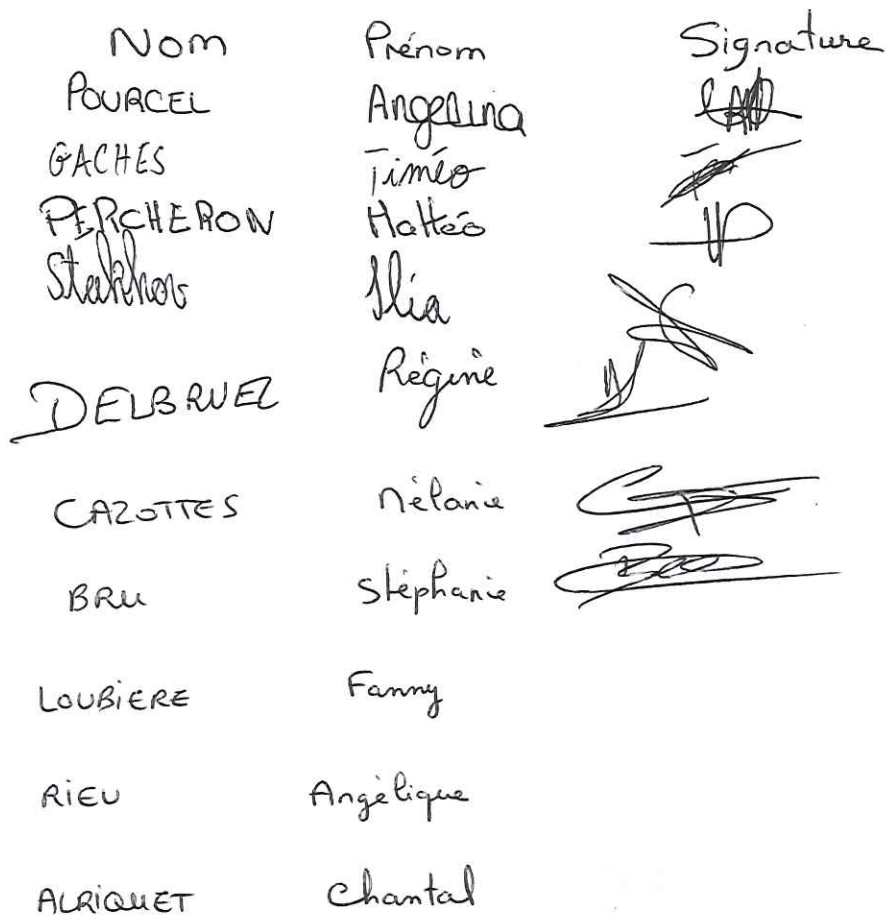 Nom Prénom Signature
POURCEL Angelina
GACHES Timéo
PERCHERON Mattéo
Stakhov Ilia
DELBRUEL Régine
CAZOTTES Mélanie
BRU Stéphanie
LOUBIERE Fanny
RIEU Angélique
ALRIQUET Chantal